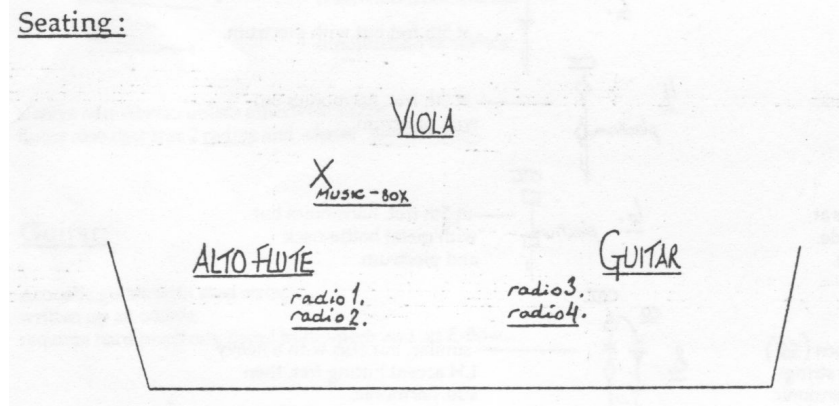 Seating :
VIOLA
X
MUSIC-BOX
ALTO FLUTE
GUITAR
radio 1.
radio 2.
radio 3.
radio 4.